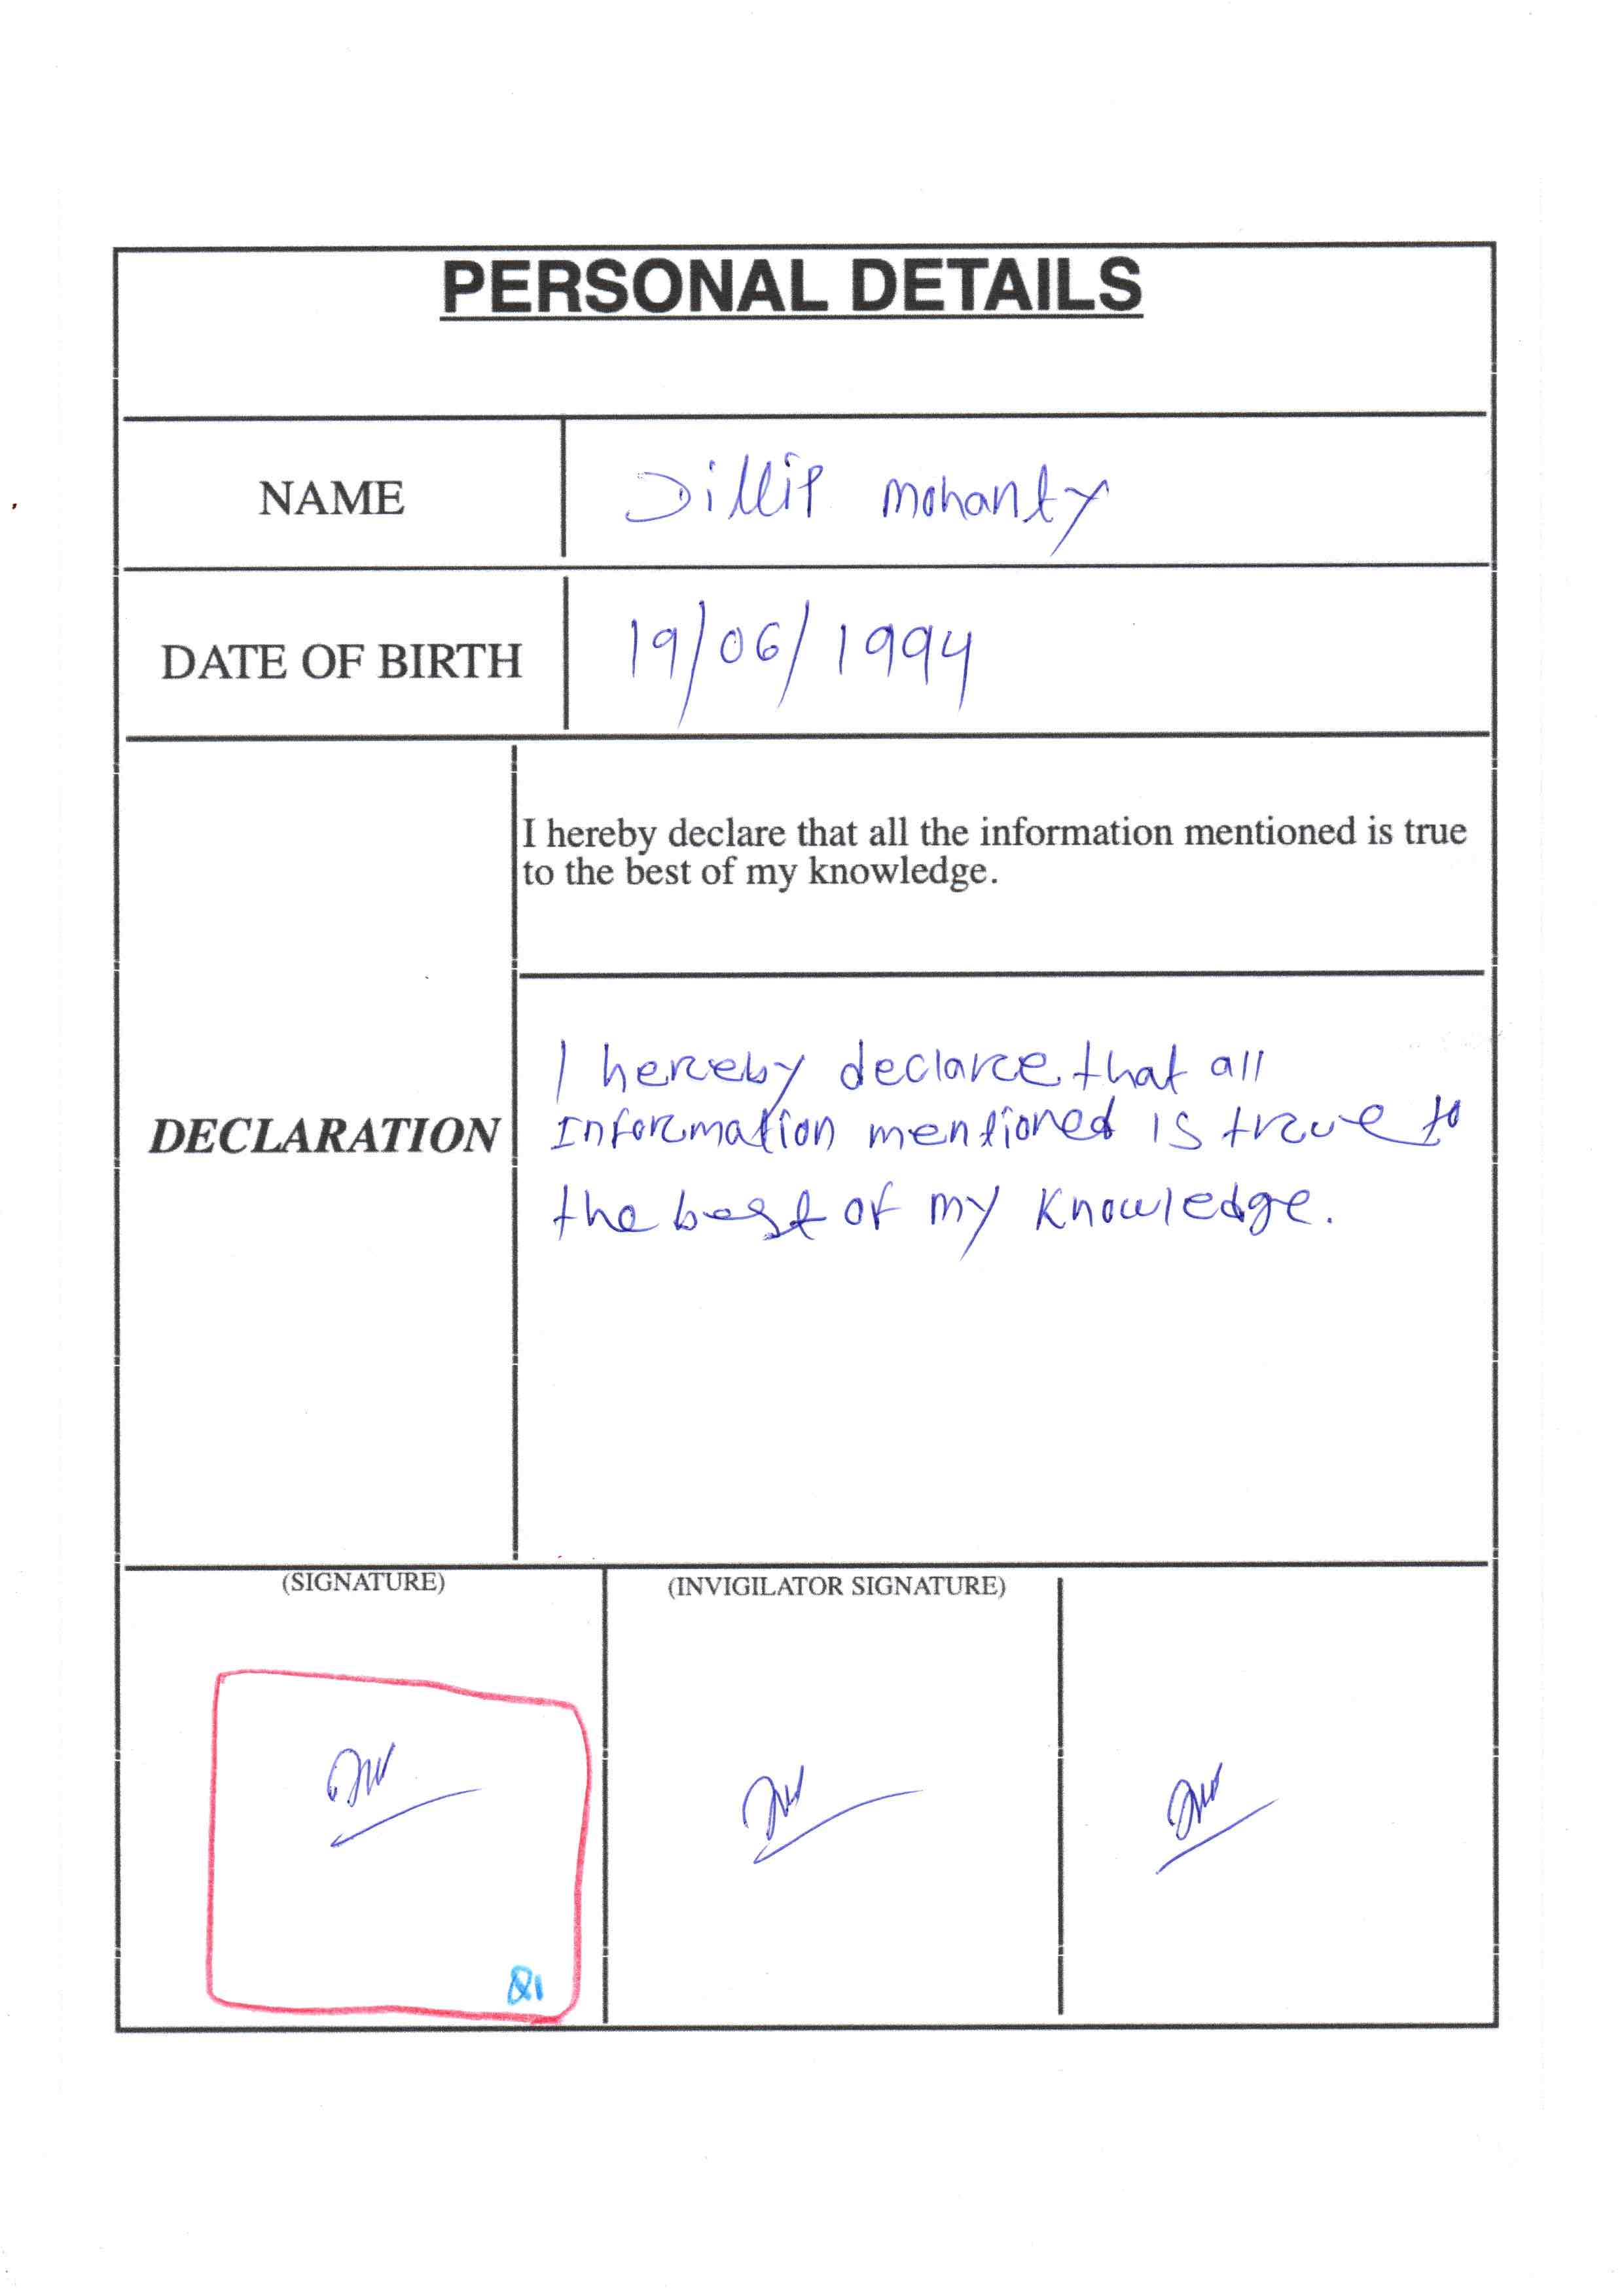 PERSONAL DETAILS
NAME
Dillip Mohanty
DATE OF BIRTH
19/06/1994
I hereby declare that all the information mentioned is true
to the best of my knowledge.
DECLARATION
I hereby declare that all
Information mentioned is true to
the best of my knowledge.
(SIGNATURE)
(INVIGILATOR SIGNATURE)